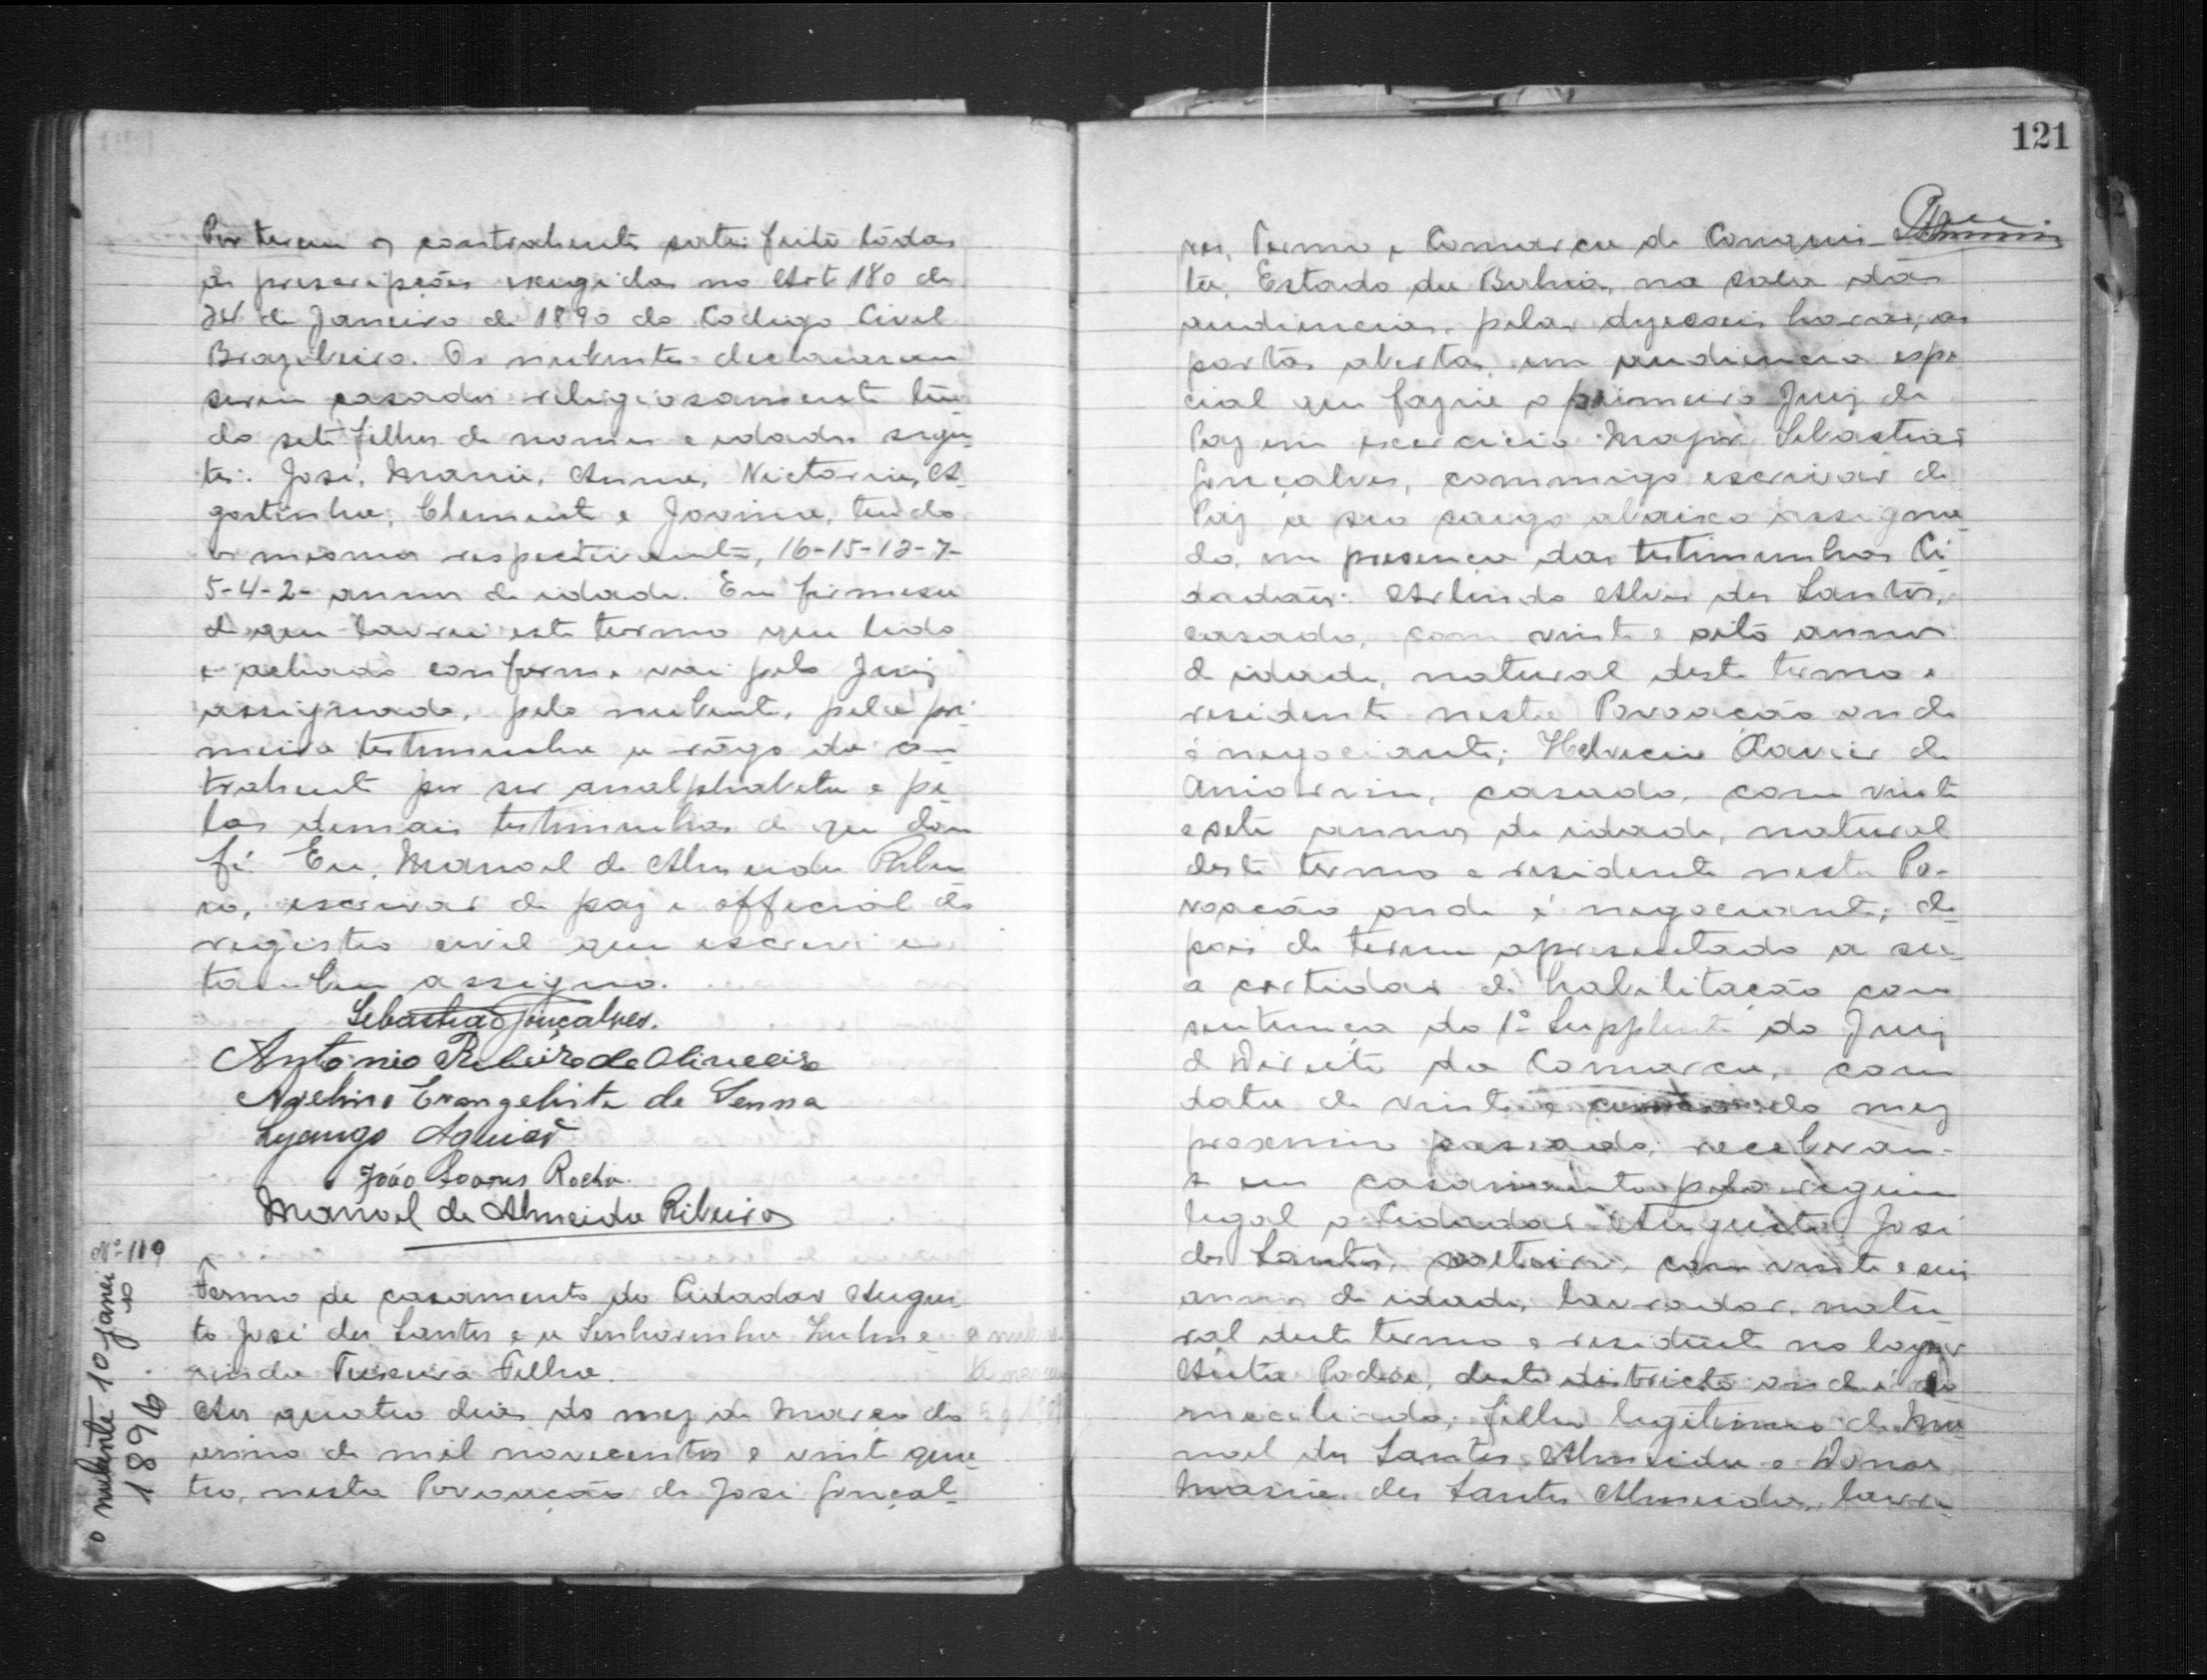 Por terem os contrahentes satisfeito tôdas
as prescripções exigidas no Art 180 de
24 de Janeiro de 1890 do Codigo Civil
Brazileiro. Os nubentes declararam
serem casados religiosamente ten-
do sete filhos de nomes e idades seguin-
tes: José, Maria, Anna, Victoria, A-
gostinho, Clemente e Jovina, tendo
os mesmos respectivamente, 16-15-12-7-
5-4-2- annos de idade. Em firmesa
de que lavrei este termo que lido
e achado conforme vai pelo Juiz
assignado, pelo nubente, pela pri-
meira testimunha a rôgo da con-
trahente por ser analphabeta e pe-
las demais testimunhas de que dou
fé. Eu, Manoel de Almeida Ribei-
ro, escrivão de paz e official do
registro civil que escrevi e
tambem assigno.
Sebastião Gonçalves.
Antonio Ribeiro de Oliveira
Avelino Evangelista de Senna
Aguiar
João Soares Rocha.
Manoel de Almeida Ribeiro
Nº 119
o nubente 10 janeiro
1896
Termo de casamento do Cidadão Augus-
to José dos Santos e a Senhorinha
Teixeira Filha.
Aos quatro dias do mez de Março do
anno de mil novecentos e vinte qua-
tro, nesta Povoação de José Gonçal-
121
ves, Termo e Comarca de Conquis-
ta, Estado da Bahia, na sala das
audiencias, pelas dezeseis horas, as
portas abertas, em audiencia espe-
cial que fazia o primeiro Juiz de
Paz em exercicio Major Sebastião
Gonçalves, commigo escrivão de
Paz a seu cargo abaixo assigna-
do, em presença das testimunhas Ci-
dadãos: Arlindo Alves dos Santos,
casado, com vinte e oito annos
de idade, natural deste termo e
residente nesta Povoação onde
é negociante; Helvecio Xavier de
Amorim, casado, com vinte
e sete annos de idade, natural
deste termo e residente nesta Po-
voação onde é negociante; de-
pois de terem apresentado a su-
a certidão de habilitação com
sentença do 1º Supplente do Juiz
de Direito da Comarca, com
data de vinte e do mez
proximo passado; receberam-
se em casamento pelo regimen
legal o Cidadão Augusto José
dos Santos, solteiro, com vinte e seis
annos de idade, lavrador, natu-
ral deste termo e residente no logar
Padre, deste districto onde é do
miciliado; filho legitimo de Ma-
noel dos Santos Almeida e Donna
Maria dos Santos Almeida, lavra-